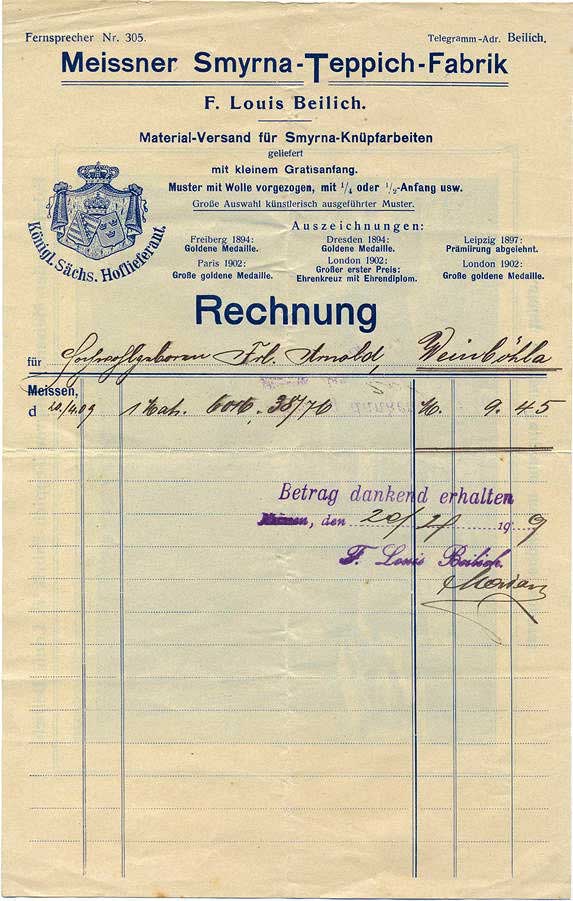 Fernsprecher Nr. 305. Telegramm-Adr. Beilich.
Meissner Smyrna-Teppich-Fabrik
F. Louis Beilich.
Material-Versand für Smyrna-Knüpfarbeiten
geliefert
mit kleinem Gratisanfang.
Muster mit Wolle vorgezogen, mit 1/4 oder 1/2-Anfang usw.
Große Auswahl künstlerisch ausgeführter Muster.
Königl. Sächs. Hoflieferant.
Auszeichnungen:
Freiberg 1894:
Goldene Medaille.
Dresden 1894:
Goldene Medaille.
Leipzig 1897:
Prämiirung abgelehnt.
Paris 1902:
Große goldene Medaille.
London 1902:
Großer erster Preis:
Ehrenkreuz mit Ehrendiplom.
London 1902:
Große goldene Medaille.
Rechnung
für Hochwohlgeboren Frl. Arnold, Weinböhla
Meissen,
d 20/4.09 1 38/76 M. 9.45
Betrag dankend erhalten
den 20/ 19 9
F. Louis Beilich.